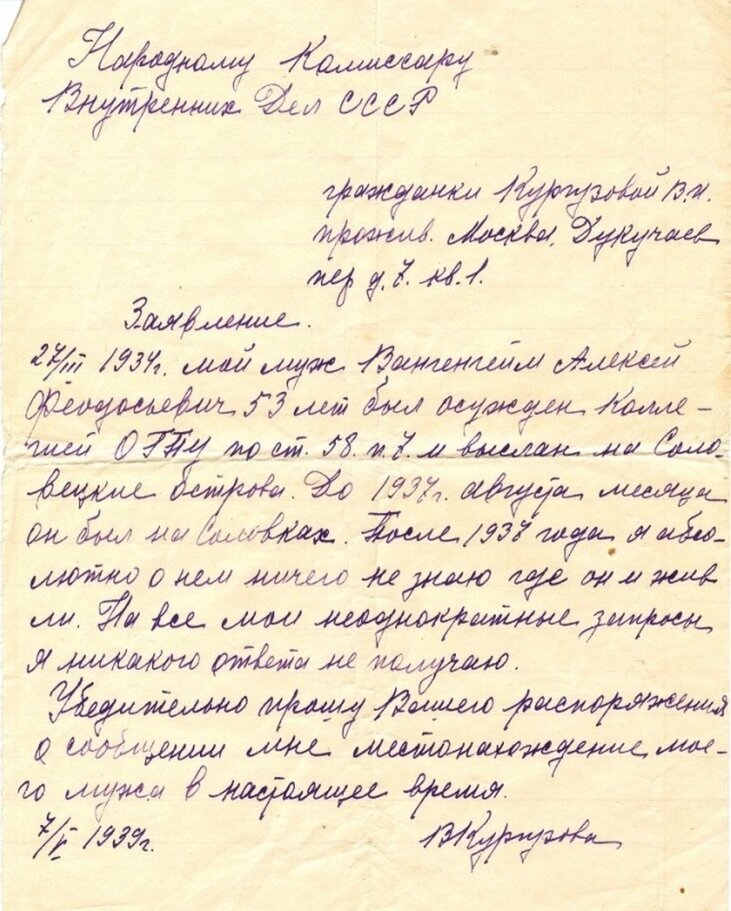 Народному Комиссару
Внутренних Дел СССР
гражданки Кургузовой В.И.
прожив. Москва, Дукучаев
пер д. 7. кв. 1.
Заявление.
27/III 1934г. мой муж Вангенгейм Алексей
Феодосьевич 53 лет был осужден Колле-
гией ОГПУ по ст. 58. п. 7. и выслан на Соло-
вецкие острова. До 1937г. августа месяца
он был на Соловках. После 1937 года я абсо-
лютно о нем ничего не знаю где он и жив
ли. На все мои неоднократные запросы
я никакого ответа не получаю.
Убедительно прошу Вашего распоряжения
о сообщении мне местонахождение мое-
го мужа в настоящее время.
7/V 1939г.
ВКургузова